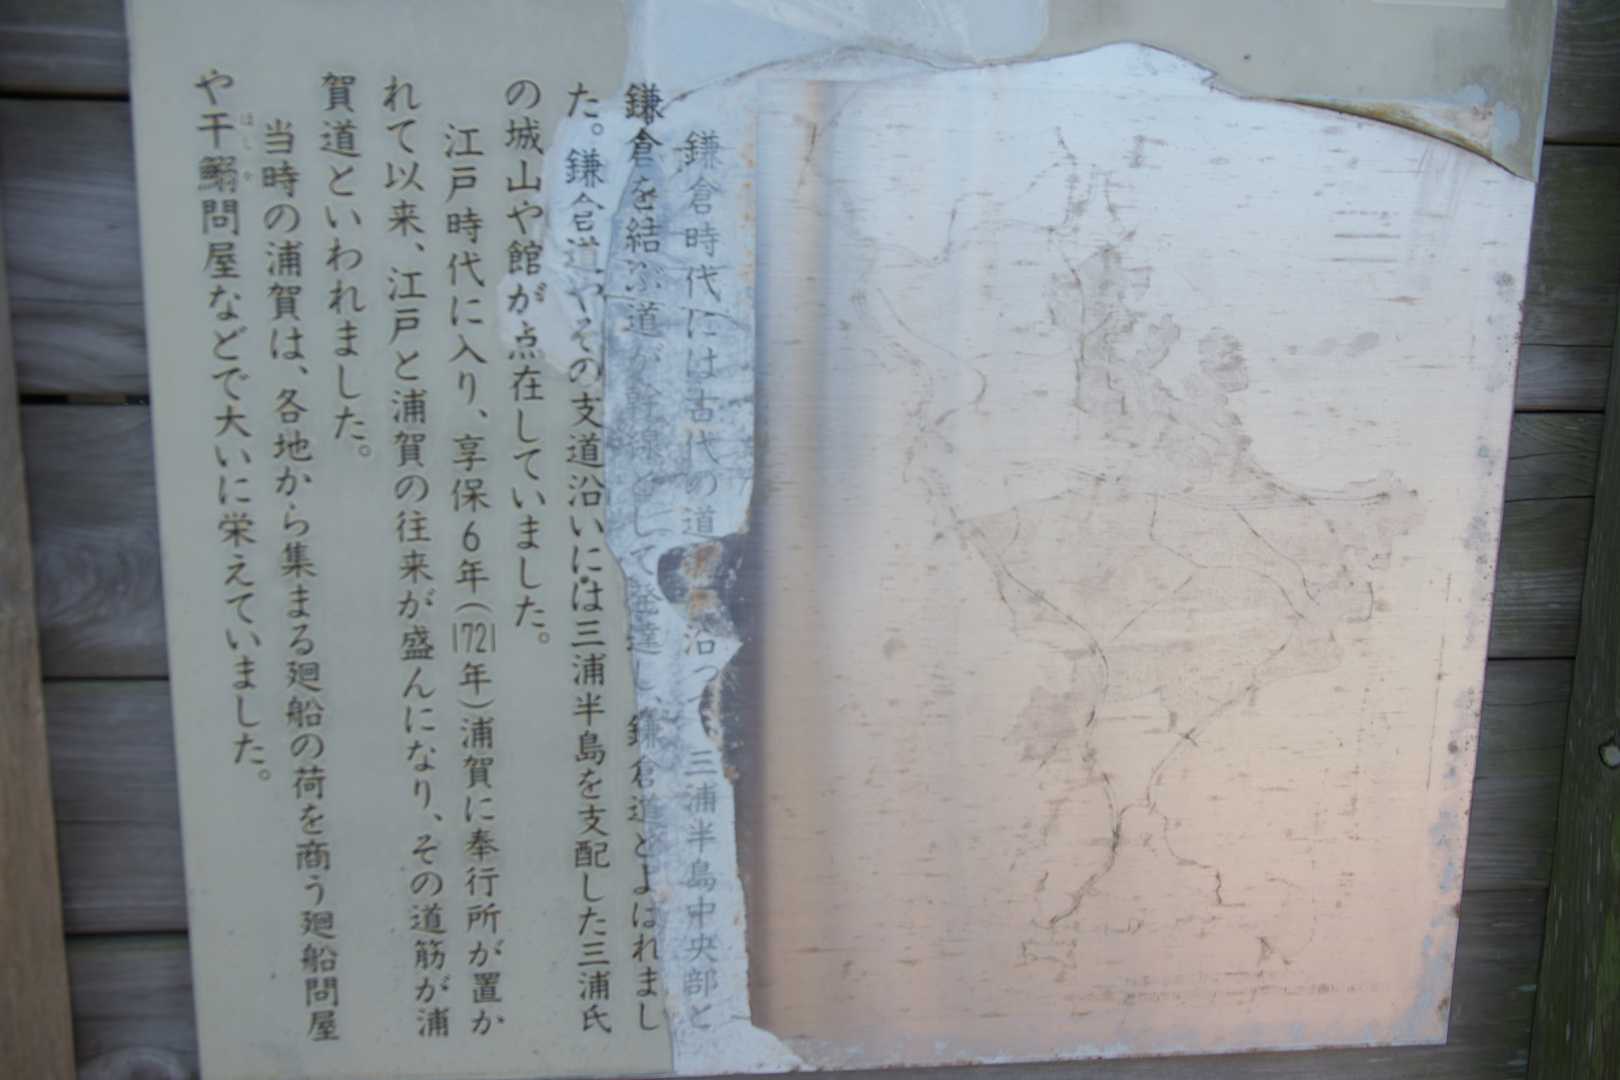 鎌倉時代には古代の道 沿って三浦半島中央部と
鎌倉を結ぶ道が幹線として発達し、鎌倉道とよばれまし
た。鎌倉道やその支道沿いには三浦半島を支配した三浦氏
の城山や館が点在していました。
江戸時代に入り、享保6年(1721年)浦賀に奉行所が置か
れて以来、江戸と浦賀の往来が盛んになり、その道筋が浦
賀道といわれました。
当時の浦賀は、各地から集まる廻船の荷を商う廻船問屋
や干鰯問屋などで大いに栄えていました。
ほしか